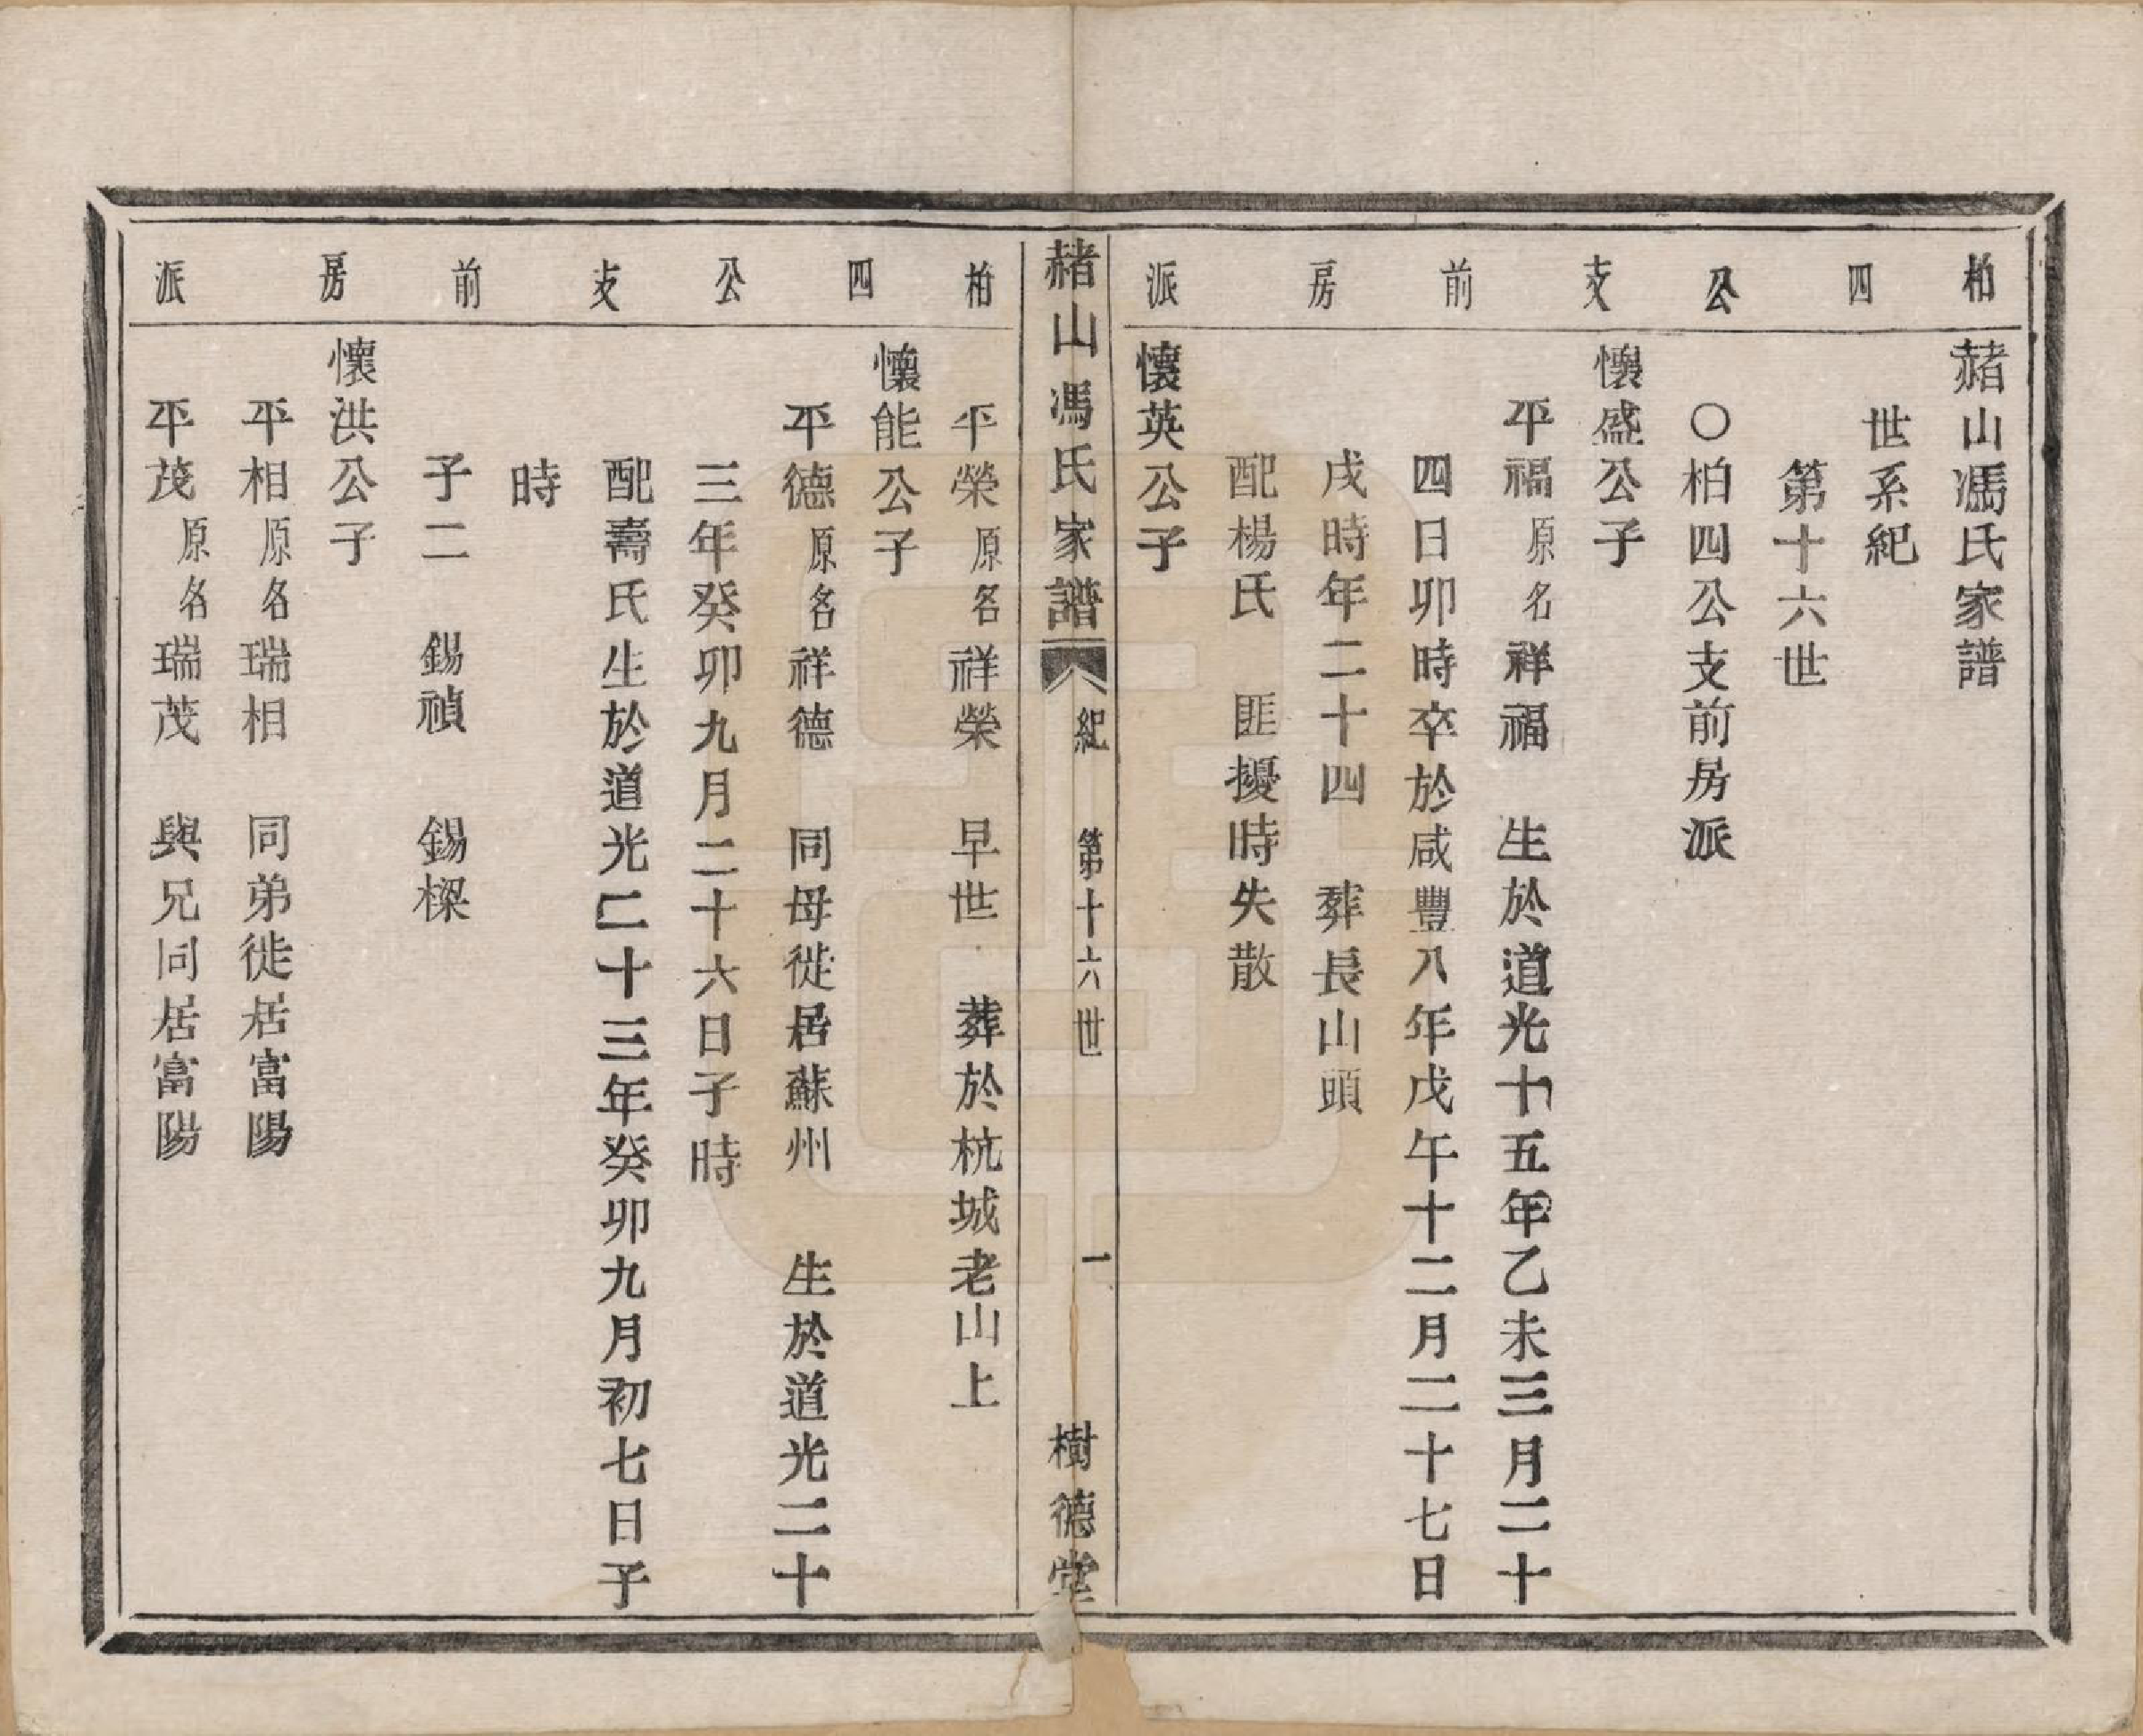 柏四公支前房派
赭山馮氏家譜
世系紀
第十六世
○柏四公支前房派
懷盛公子
平福原名祥福　生於道光十五年乙未三月二十
四日卯時卒於咸豐八年戊午十二月二十七日
戌時年二十四　葬長山頭
配楊氏　匪擾時失散
懷英公子
赭山馮氏家譜　紀　第十六世　一　樹德堂
柏四公支前房派
平榮原名祥榮　早世　葬於杭城老山上
懷能公子
平德原名祥德　同母徙居蘇州　生於道光二十
三年癸卯九月二十六日子時
配壽氏生於道光二十三年癸卯九月初七日子
時
子二　錫禎　錫樑
懷洪公子
平相原名瑞相　同弟徙居富陽
平茂原名瑞茂　與兄同居富陽